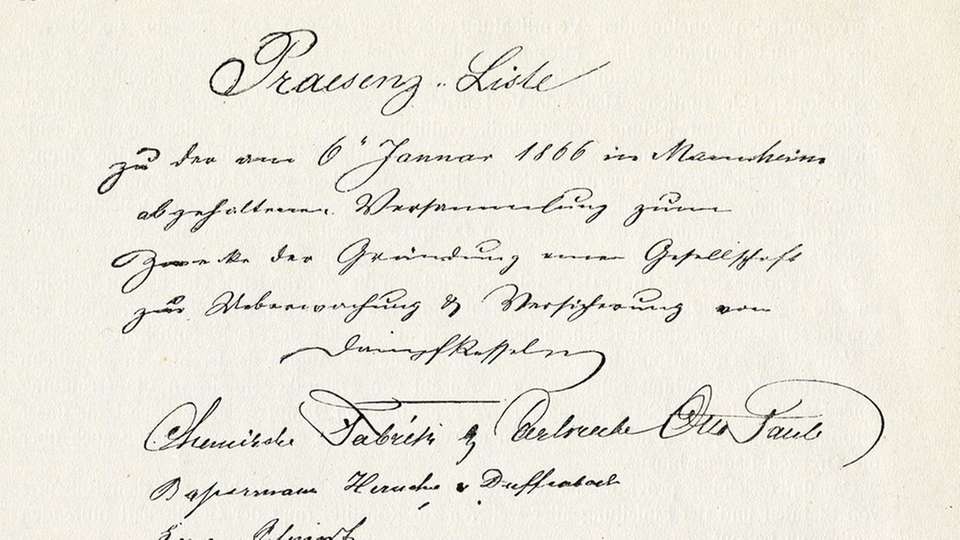 Praesenz-Liste
zu der am 6n Januar 1866 in Mannheim
abgehaltenen Versammlung zum
Zwecke der Gründung einer Gesellschaft
zur Ueberwachung & Versicherung von
Dampfkesseln
Chemische Fabrik Otto Pauli
Bassermann Herrschel & Dieffenbach